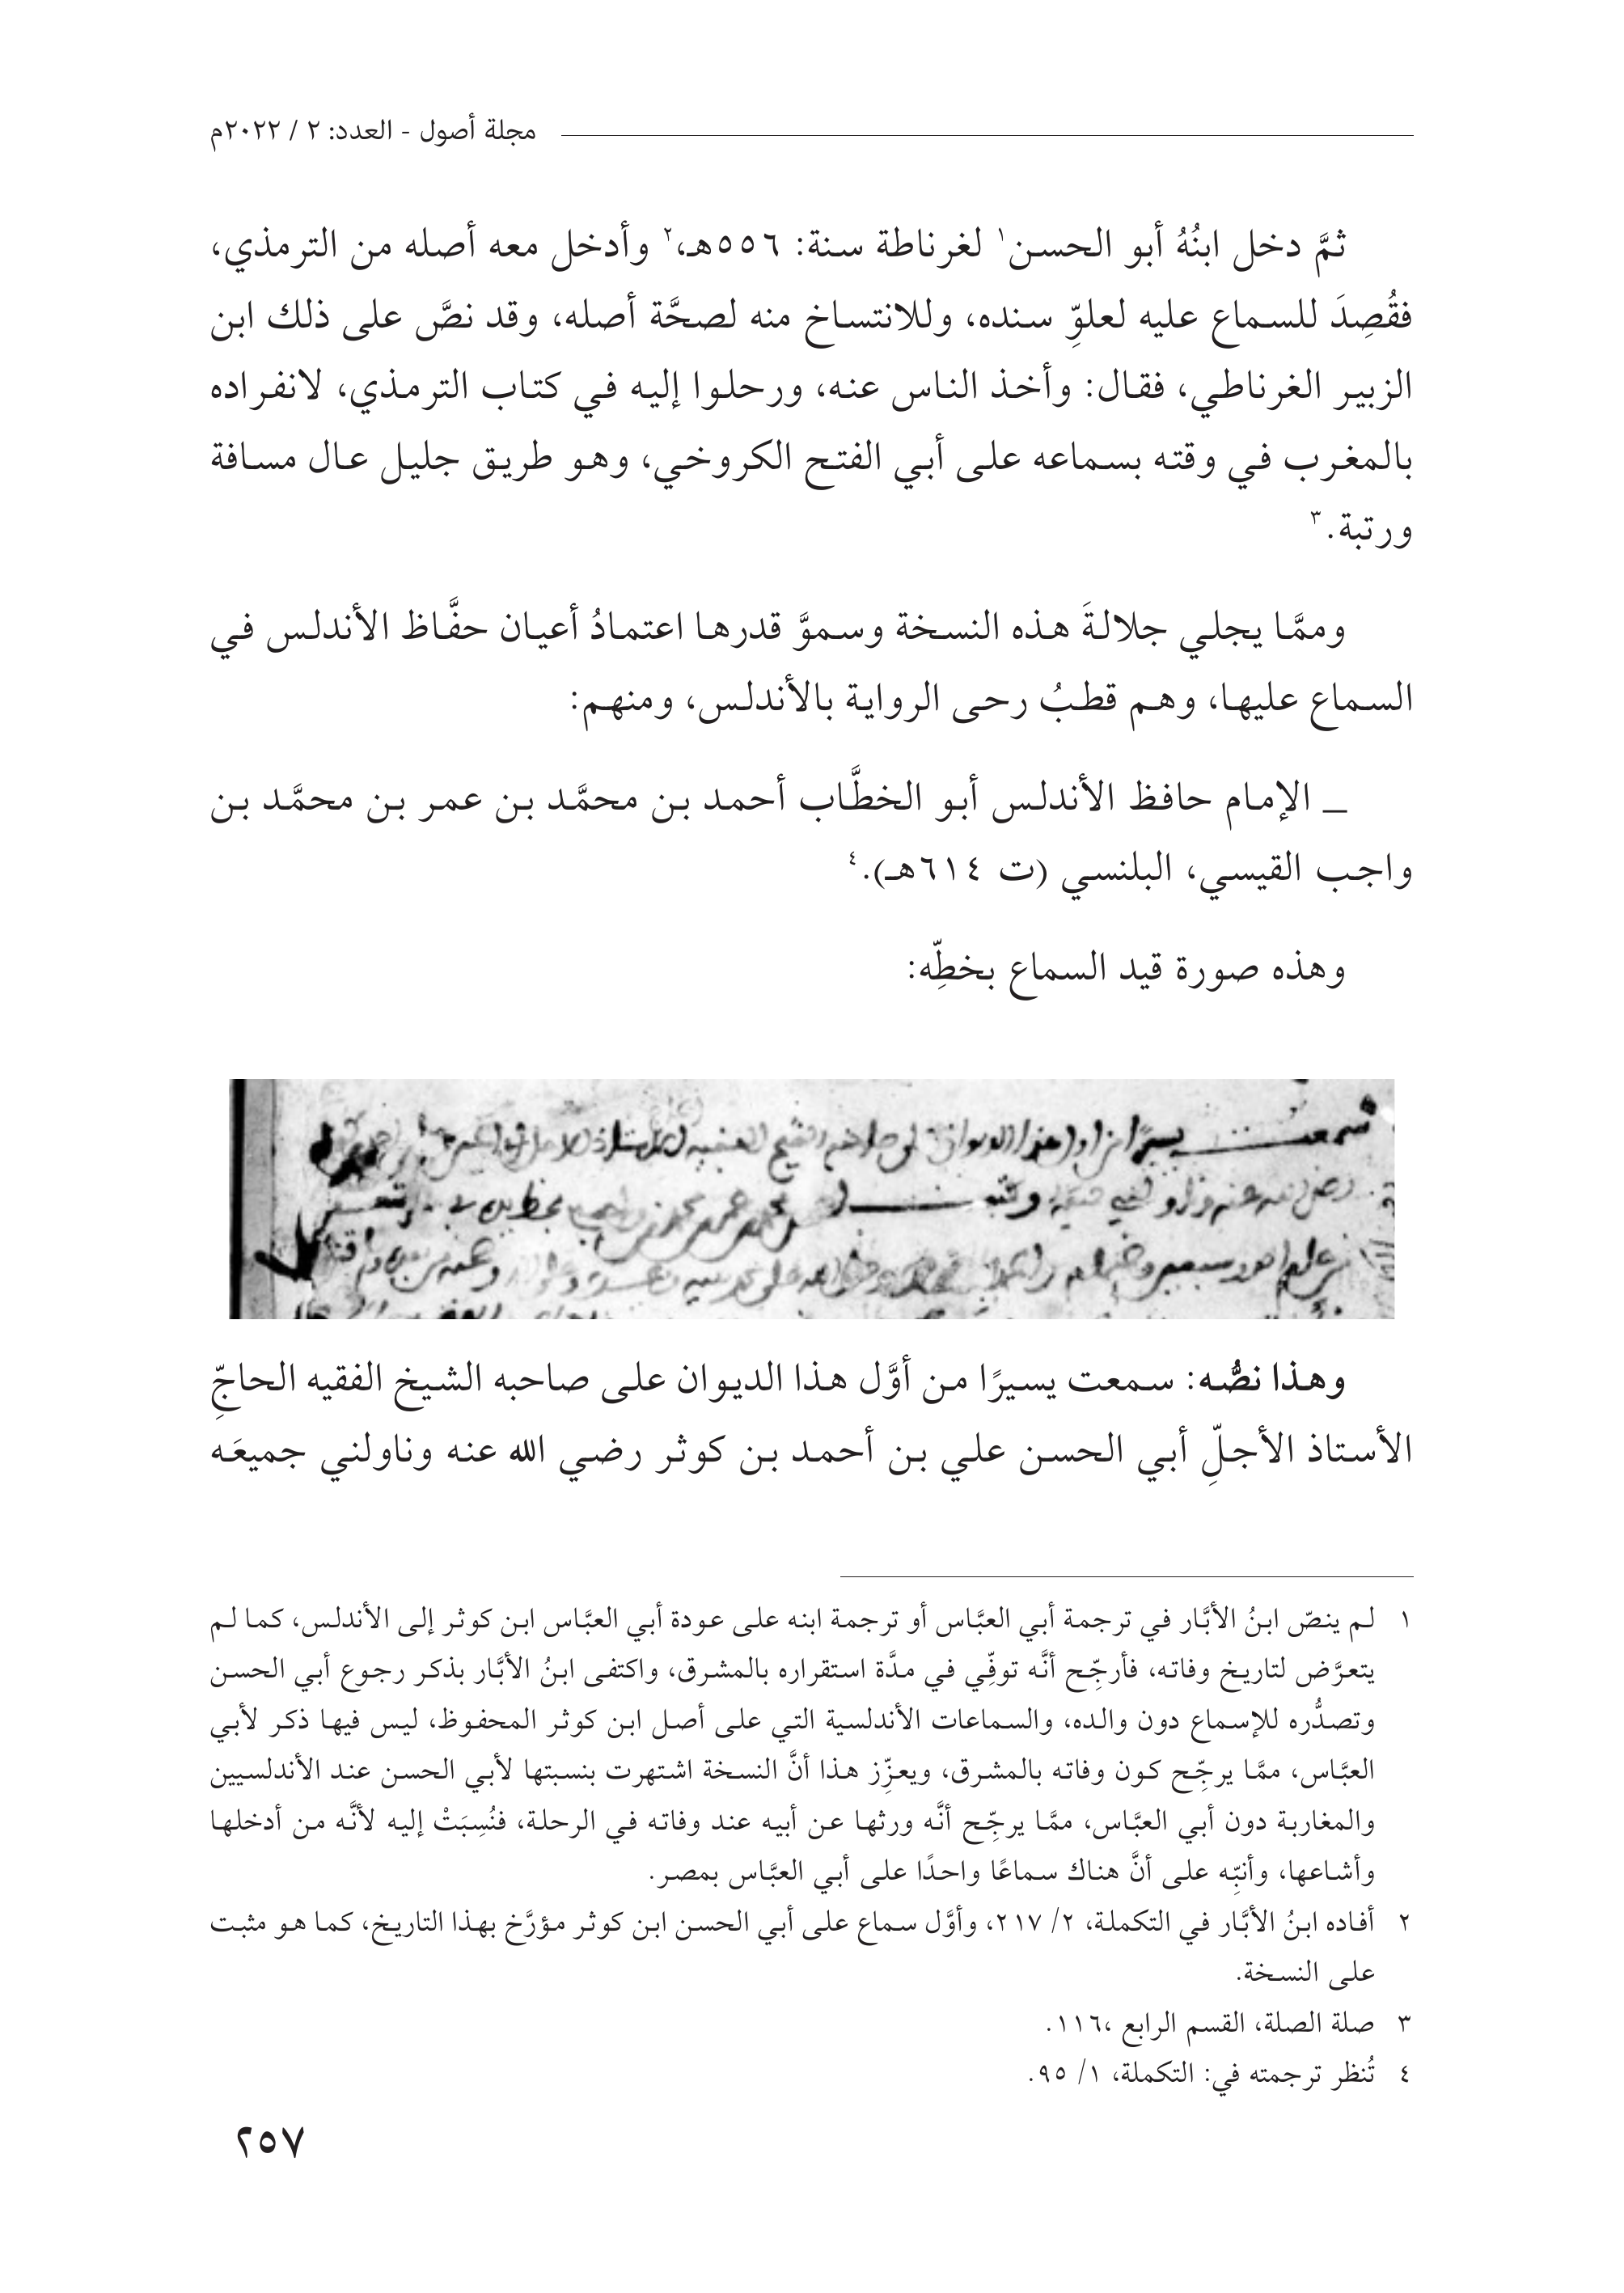 مجلة أصول - العدد: ٢ / ٢٠٢٢م
ثمَّ دخل ابنُهُ أبو الحسن١ لغرناطة سنة: ٥٥٦هـ،٢ وأدخل معه أصله من الترمذي،
فقُصِدَ للسماع عليه لعلوِّ سنده، وللانتساخ منه لصحَّة أصله، وقد نصَّ على ذلك ابن
الزبير الغرناطي، فقال: وأخذ الناس عنه، ورحلوا إليه في كتاب الترمذي، لانفراده
بالمغرب في وقته بسماعه على أبي الفتح الكروخي، وهو طريق جليل عال مسافة
ورتبة.٣
وممَّا يجلي جلالةَ هذه النسخة وسموَّ قدرها اعتمادُ أعيان حفَّاظ الأندلس في
السماع عليها، وهم قطبُ رحى الرواية بالأندلس، ومنهم:
_ الإمام حافظ الأندلس أبو الخطَّاب أحمد بن محمَّد بن عمر بن محمَّد بن
واجب القيسي، البلنسي (ت ٦١٤هـ).٤
وهذه صورة قيد السماع بخطِّه:
وهذا نصُّه: سمعت يسيرًا من أوَّل هذا الديوان على صاحبه الشيخ الفقيه الحاجِّ
الأستاذ الأجلِّ أبي الحسن علي بن أحمد بن كوثر رضي الله عنه وناولني جميعَه
١ لم ينصّ ابنُ الأبَّار في ترجمة أبي العبَّاس أو ترجمة ابنه على عودة أبي العبَّاس ابن كوثر إلى الأندلس، كما لم
يتعرَّض لتاريخ وفاته، فأرجِّح أنَّه توفِّي في مدَّة استقراره بالمشرق، واكتفى ابنُ الأبَّار بذكر رجوع أبي الحسن
وتصدُّره للإسماع دون والده، والسماعات الأندلسية التي على أصل ابن كوثر المحفوظ، ليس فيها ذكر لأبي
العبَّاس، ممَّا يرجِّح كون وفاته بالمشرق، ويعزِّز هذا أنَّ النسخة اشتهرت بنسبتها لأبي الحسن عند الأندلسيين
والمغاربة دون أبي العبَّاس، ممَّا يرجِّح أنَّه ورثها عن أبيه عند وفاته في الرحلة، فنُسِبَتْ إليه لأنَّه من أدخلها
وأشاعها، وأنبِّه على أنَّ هناك سماعًا واحدًا على أبي العبَّاس بمصر.
٢ أفاده ابنُ الأبَّار في التكملة، ٢/ ٢١٧، وأوَّل سماع على أبي الحسن ابن كوثر مؤرَّخ بهذا التاريخ، كما هو مثبت
على النسخة.
٣ صلة الصلة، القسم الرابع ،١١٦.
٤ تُنظر ترجمته في: التكملة، ١/ ٩٥.
٢٥٧